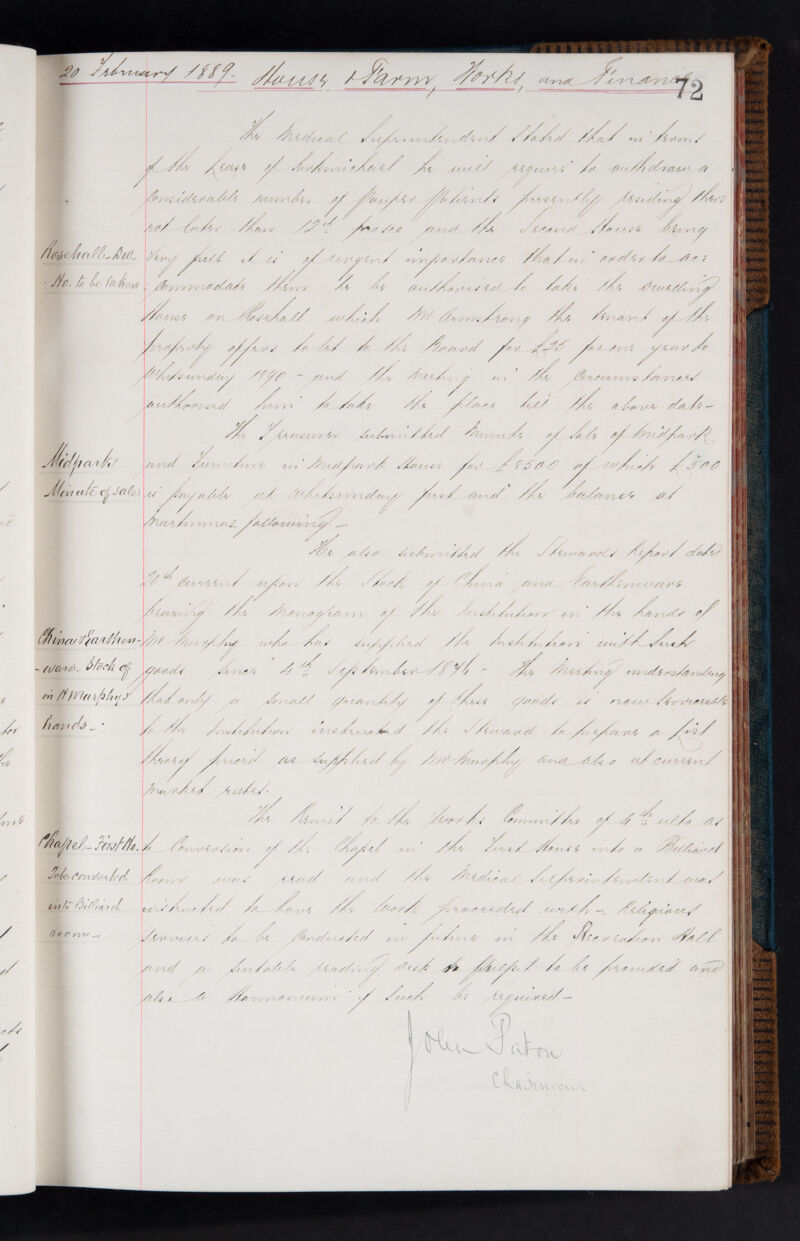 20 February 1889. House & Farm, Works, and Finance
72
The Medical Superintendent Stated that in terms
of the Lease of Kirkmichael he will require to withdraw a
Considerable number of Pauper Patients presently residing there
not later than 12th proxo and the Second House being
Rosehall - Dw.
- Ho. to be taken
very full it is of urgent importance that in order to ac:
:commodate them he be authorised to take the Dwelling
House on Rosehall which Mr Armstrong the tenant of the
property offers to let to the Board for £25 for one year to
Whitsunday 1890 - and the Meeting in the Circumstances
authorised him to take the place till the above date -
The Treasurer submitted Minute of Sale of Midpark
Midpark
Minute of sale
and Furniture in Midpark House for £8500 of which £500
is payable at Whitsunday first and the balance at
Martinmas following -
He also submitted the Stewards Report dated
20th current upon the Stock of China and Earthenware
bearing the Monogram of the Institution in the hands of
China & Earthen-
-ware. Stock of
in Mr Murphys
hands -
Mr Murphy who has supplied the Institution with such
goods since 4th September 1876 - The Meeting understanding
that only a small quantity of these goods is now serviceable
to the Institution instructed the Steward to prepare a List
thereof priced as supplied by Mr Murphy and also at current
market rates.
The Remit to the Works Committee of 4th ulto as
Chapel - First Ho.
To be converted
into Billiard
room -
to Conversion of the Chapel in the First House into a Billiard
Room was read and the Medical Superintendent was
instructed to have the work proceeded with - Religious
services to be conducted in future in the Recreation Hall
and a suitable reading desk or Pulpit to be provided and
also a Harmonium if such be required -
John Paton
Chairman